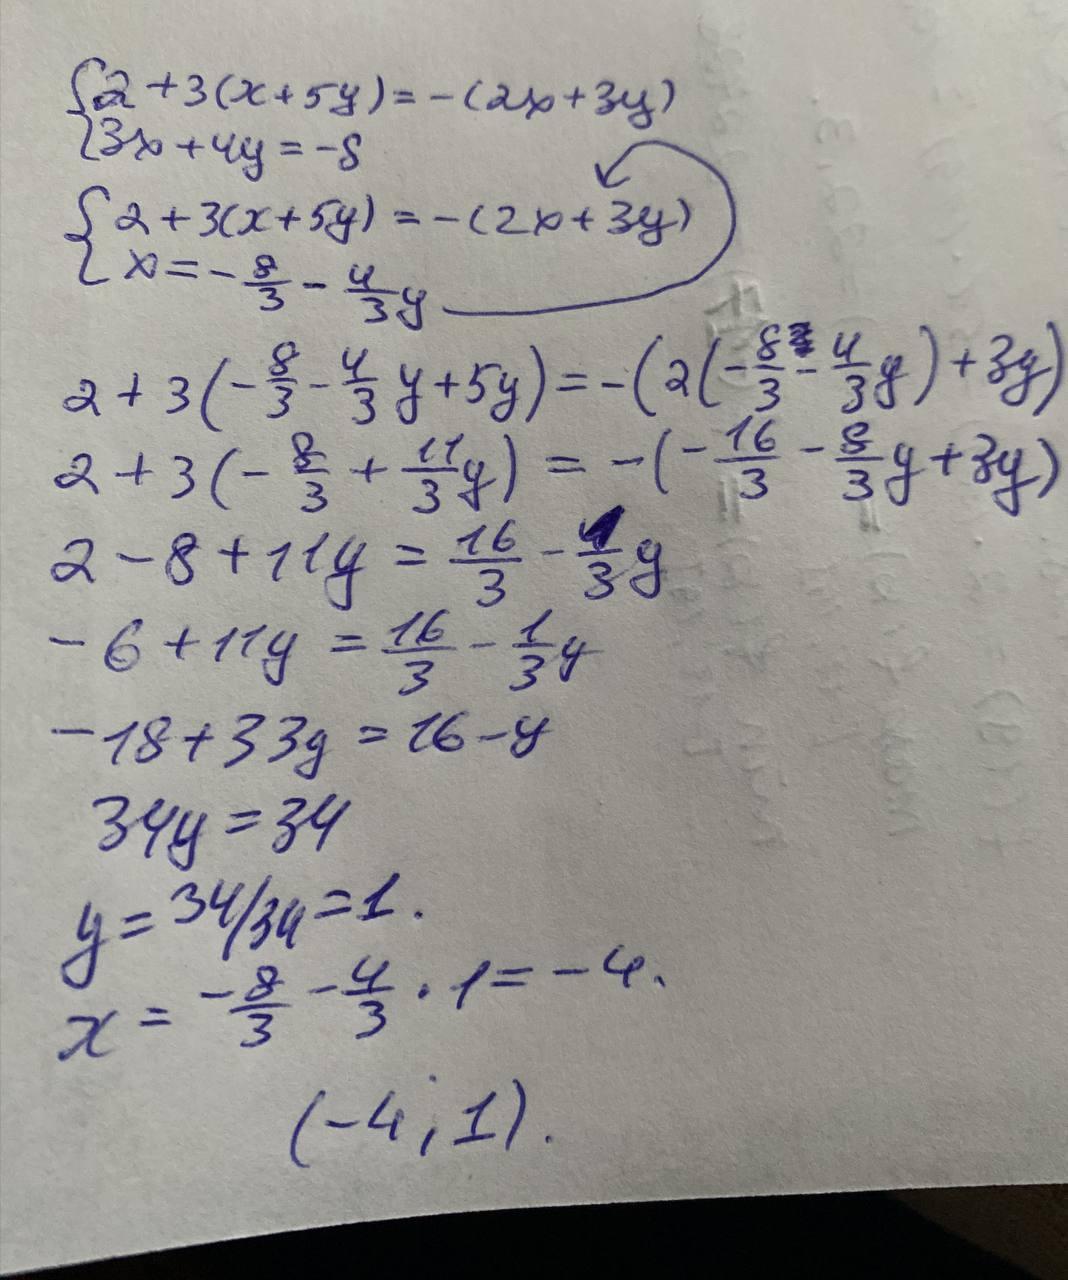 {2 + 3(x + 5y) = -(2x + 3y)
{3x + 4y = -8
{2 + 3(x + 5y) = -(2x + 3y)
{x = -8/3 - 4/3 y
2 + 3(-8/3 - 4/3 y + 5y) = -(2(-8/3 - 4/3 y) + 3y)
2 + 3(-8/3 + 11/3 y) = -(-16/3 - 8/3 y + 3y)
2 - 8 + 11y = 16/3 - 1/3 y
-6 + 11y = 16/3 - 1/3 y
-18 + 33y = 16 - y
34y = 34
y = 34/34 = 1.
x = -8/3 - 4/3 · 1 = -4.
(-4; 1).